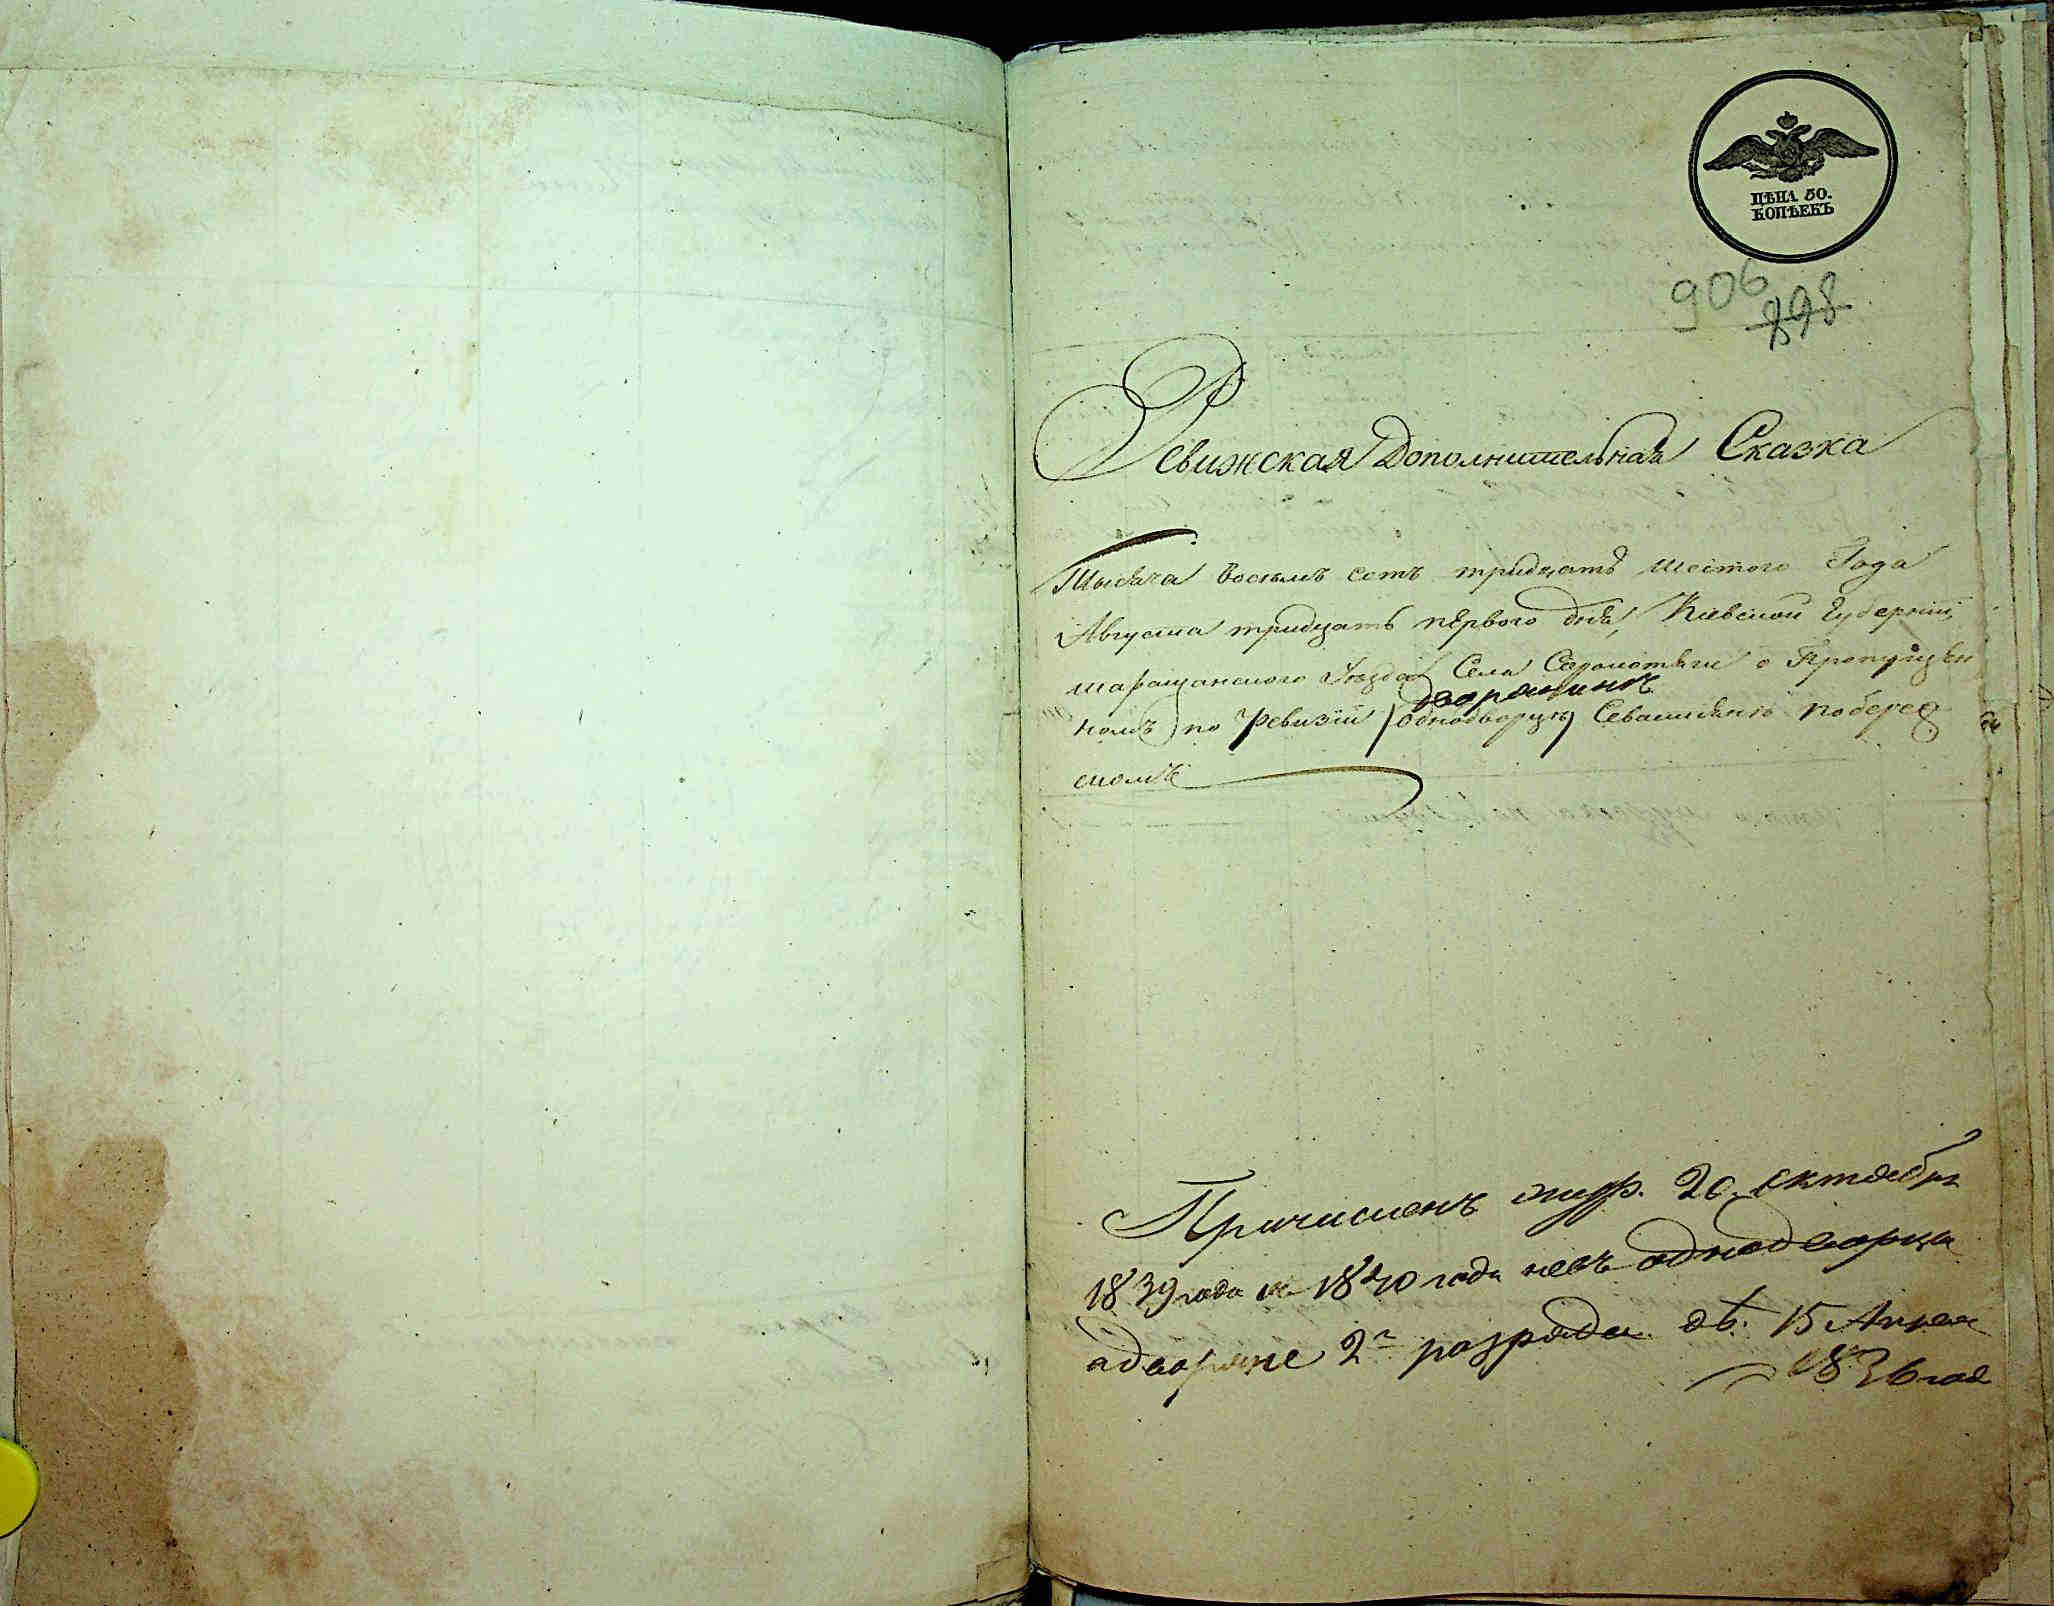 ЦѢНА 50.
КОПѢЕКЪ
906
898
Ревижская Дополнительная Сказка
Тысяча восемь сотъ тридцать шестого Года
Августа тридцать первого дня, Кіевской Губерніи,
таращанского Уѣзда Села о Пропущен
номъ по Ревизіи (однодворцѣ) Севастіянѣ поберез
дворянинѣ
скомъ
Причисленъ 20 октября
1839 года 1840 года однодворца
2го разряда 15 Апреля
1836 года